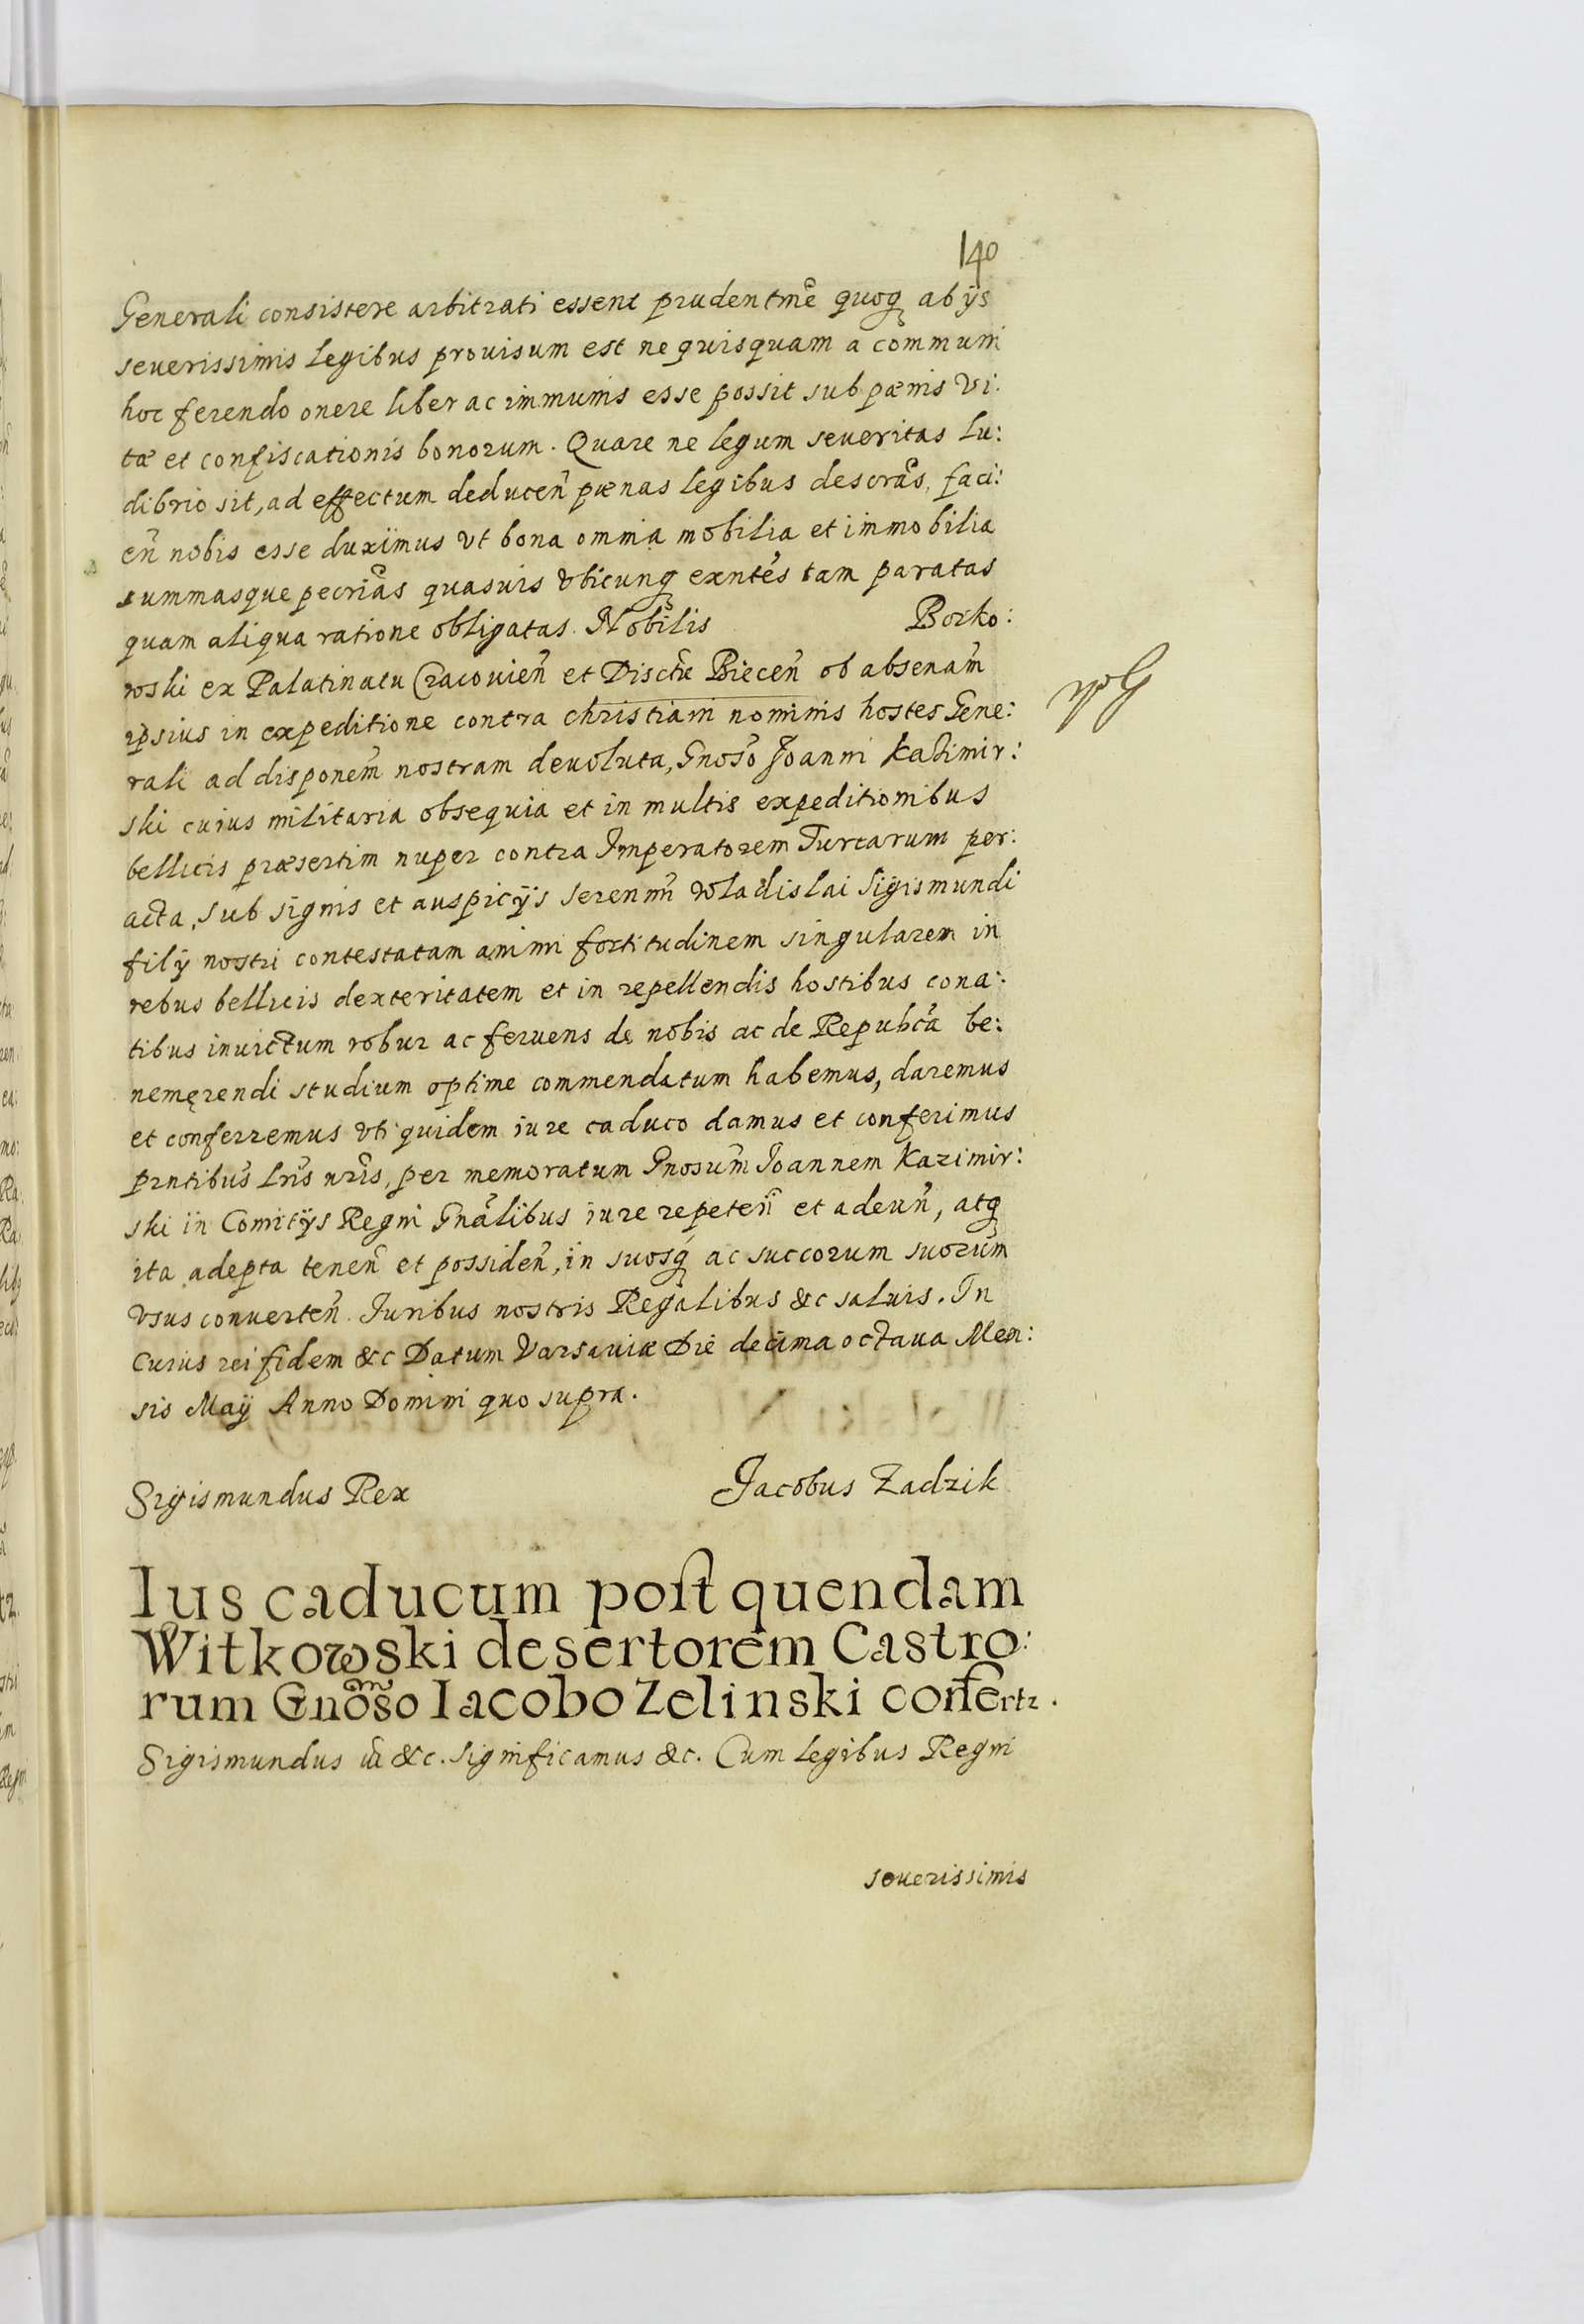 140
Generali consistere arbitrati essent prudentmẽ quoq ab ijs
seuerissimis legibus prouisum est ne quisquam a communi
hoc ferendo onere liber ac immunis esse possit sub pænis vi:
tæ et confiscationis bonorum. Quare ne legum seueritas lu:
dibrio sit, ad effectum deducen̄ pænas legibus descrãs, faci:
en̄ nobis esse duximus vt bona omnia mobilia et immobilia
summasque pecriãs quasuis vbicunq exntẽs tam paratas
quam aliqua ratione obligatas. Nobilis Borko:
woski ex Palatinatu Cracouien̄ et Disctũ Biecen̄ ob absenam̄
ipsius in expeditione contra christiani nominis hostes Gene:
rali ad disponem̄ nostram deuoluta, Gnoso Joanni Kazimir:
ski cuius militaria obsequia et in multis expeditionibus
bellicis præsertim nuper contra Imperatorem Turcarum per:
acta, sub signis et auspicijs serenmi Wladislai Sigismundi
filij nostri contestatam animi fortitudinem singularem in
rebus bellicis dexteritatem et in repellendis hostibus cona:
tibus inuictum robur ac feruens de nobis ac de Repubca be:
nemęrendi studium optime commendatum habemus, daremus
et conferremus vti quidem iure caduco damus et conferimus
prntibus lris nris, per memoratum Gnosum Joannem Kazimir:
ski in Comitijs Regni Gnalibus iure repeten̄ et adeun̄, atq
ita adepta tenen̄ et possiden̄, in suosq ac succorum suorum
vsus conuerten̄. Juribus nostris Regalibus &c saluis. In
cuius rei fidem &c Datum Varsauiæ Die decima octaua Men:
sis Maij Anno Domini quo supra.
Sigismundus Rex Jacobus Zadzik
Ius caducum post quendam
Witkowski desertorem Castro:
rum Gnoso Iacobo Zelinski confertr.
Sigismundus &c. significamus &c. Cum legibus Regni
seuerissimis